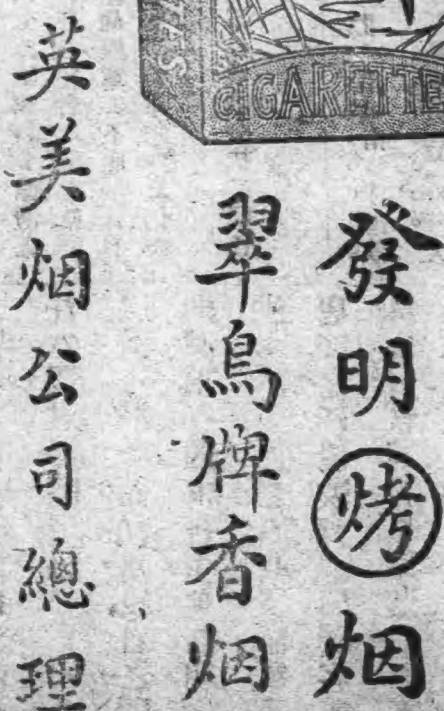 CIGARETTE
發明烤烟
翠鳥牌香烟
英美烟公司總理